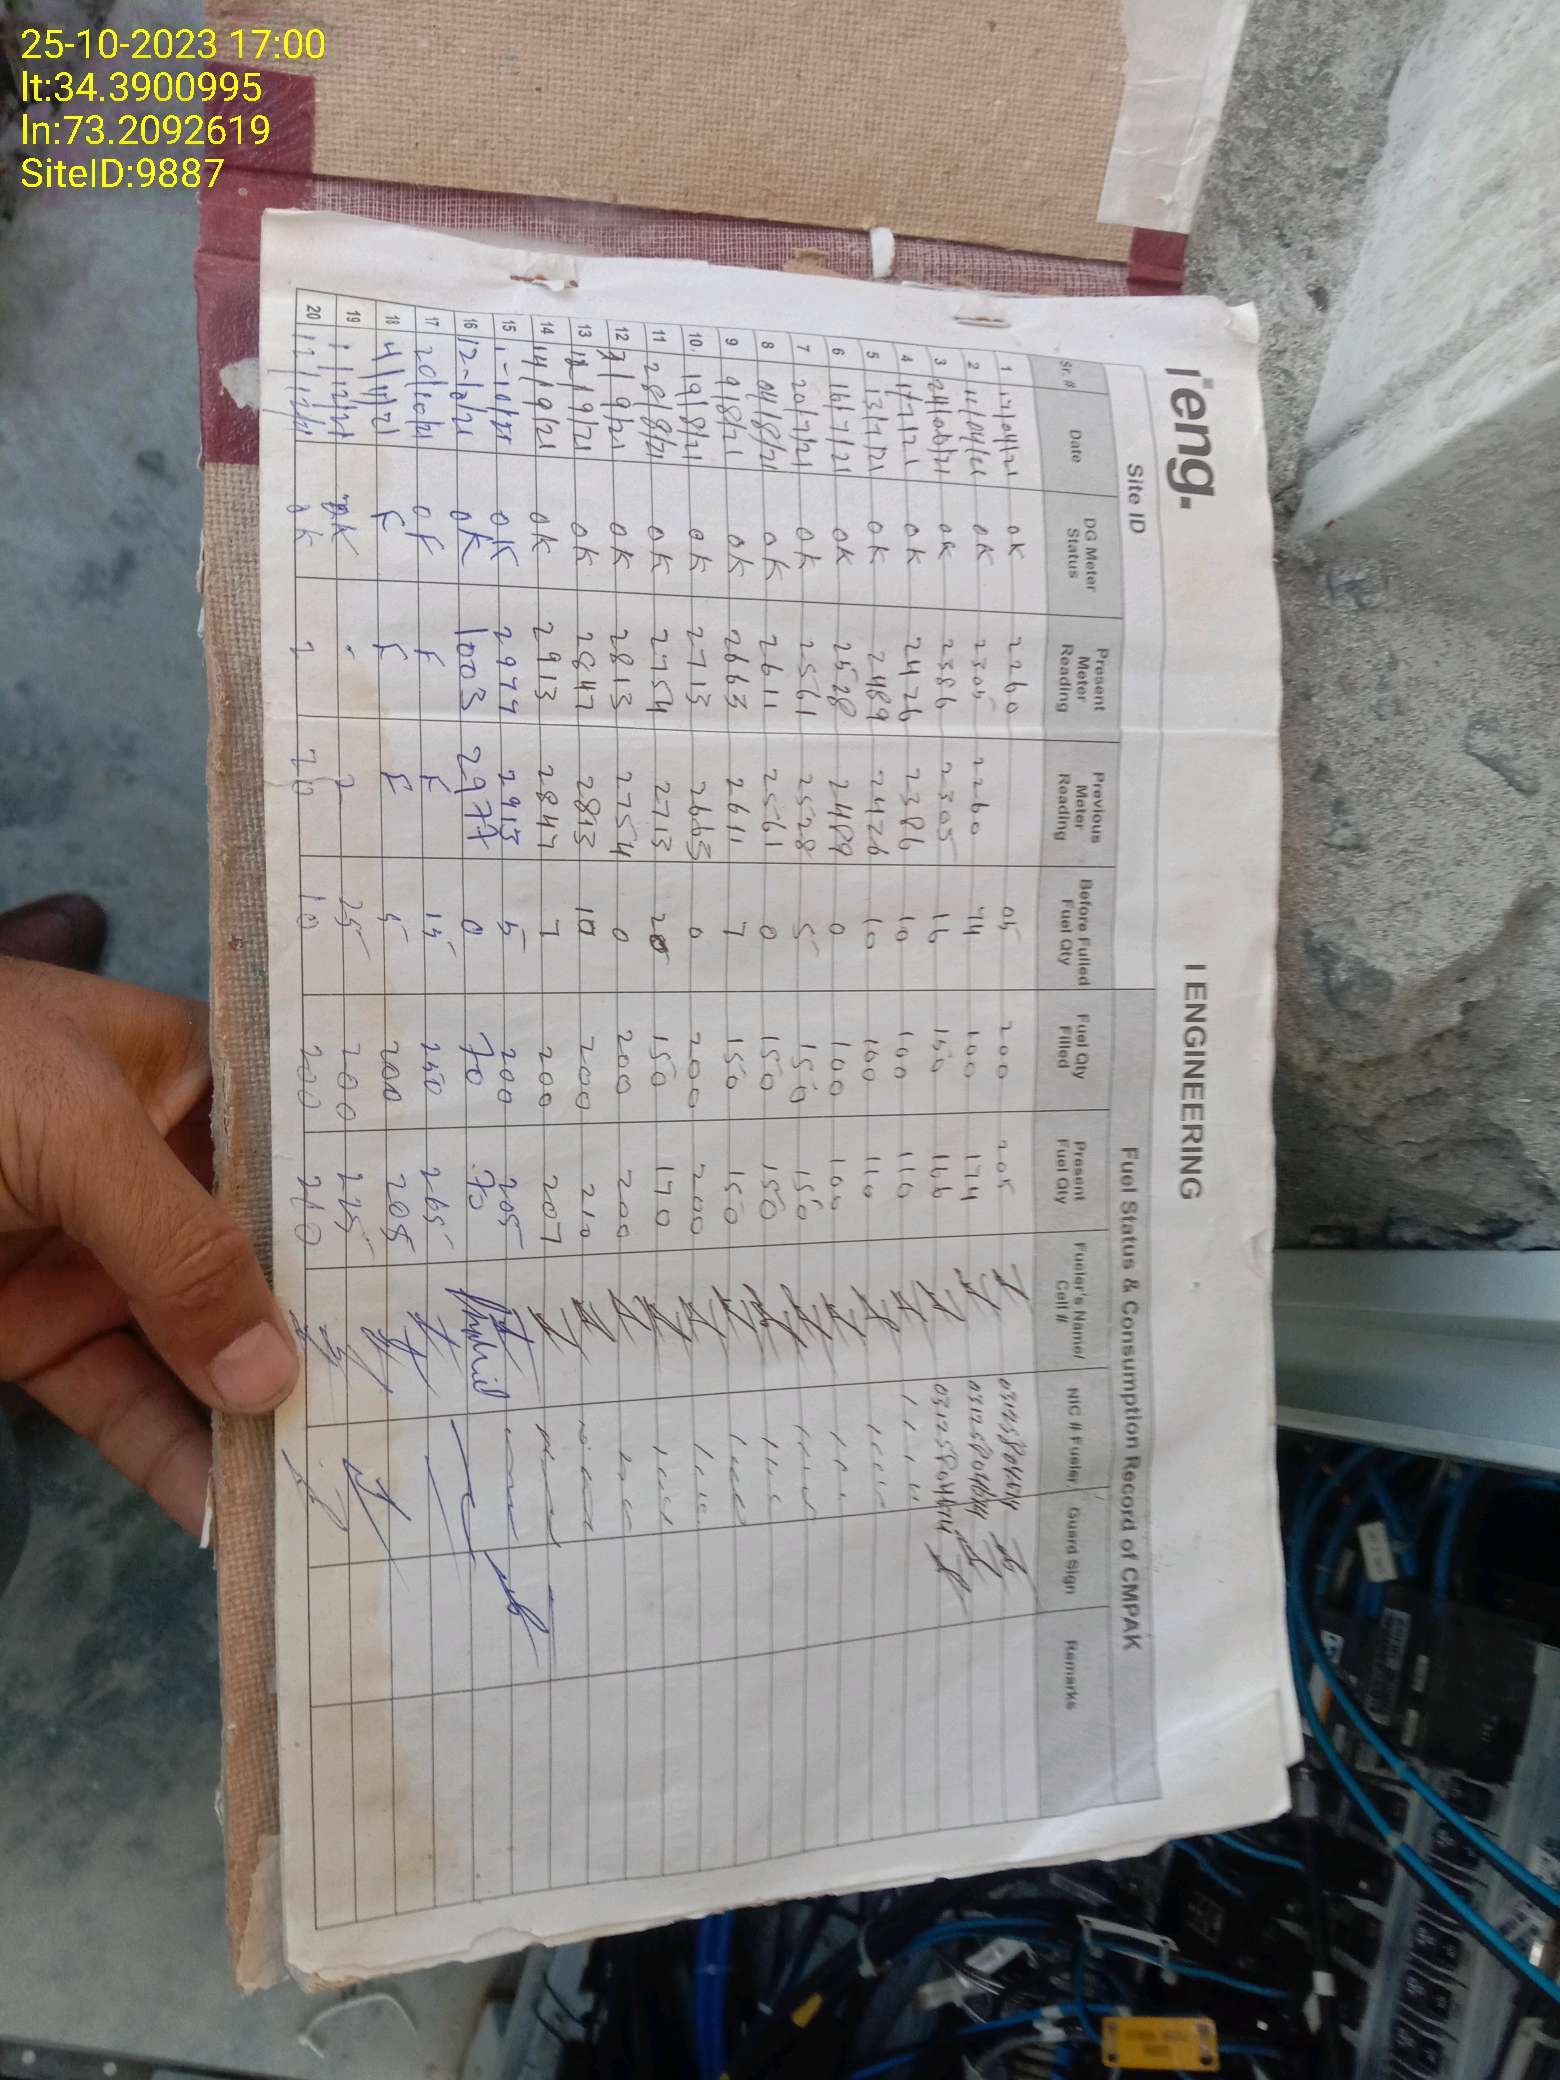 25-10-2023 17:00
lt:34.3900995
ln:73.2092619
SiteID:9887
ieng.
I ENGINEERING
Site ID
Fuel Status & Consumption Record of CMPAK
Sr. # Date DG Meter Status Present Meter Reading Previous Meter Reading Before Fulled Fuel Qty Fuel Qty Filled Present Fuel Qty Fueler's Name/ Cell # NIC # Fueler Guard Sign Remarks
1 OK 2260 05 200 205
2 OK 2305 2260 74 100 174
3 OK 2386 2305 16 150 166
4 1/7/21 OK 2426 2386 10 100 110
5 13/7/21 OK 2489 2426 10 100 110
6 16/7/21 OK 2528 2489 0 100 100
7 20/7/21 OK 2561 2528 5 150 150
8 04/8/21 OK 2611 2561 0 150 150
9 9/8/21 OK 2663 2611 7 150 150
10 19/8/21 OK 2713 2663 0 200 200
11 28/8/21 OK 2754 2713 20 150 170
12 OK 2813 2754 0 200 200
13 OK 2847 2813 10 200 210
14 14/9/21 OK 2913 2847 7 200 207
15 OK 2977 2913 5 200 205
16 12-10/21 OK 1003 2977 0 70 70
17 20/10/21 OK F F 15 250 265
18 4/11/21 K F F 5 200 205
19 1/12/21 OK 25 200 225
20 OK 10 200 210